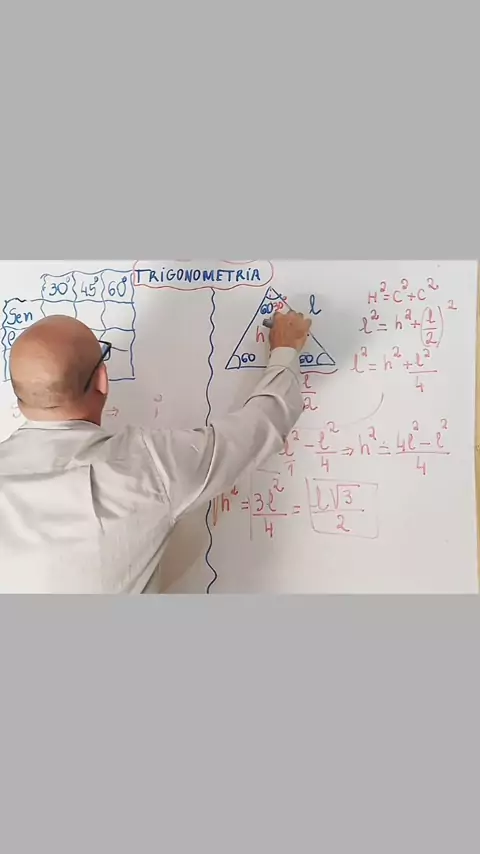 TRIGONOMETRIA
30° 45° 60°
Sen
60 30°
l
h
60 60
l
2
H² = C² + C²
l² = h² + (l/2)²
l² = h² + l²/4
l²/1 - l²/4 ⇒ h² = 4l² - l²/4
√h² = √3l²/4 = l√3/2